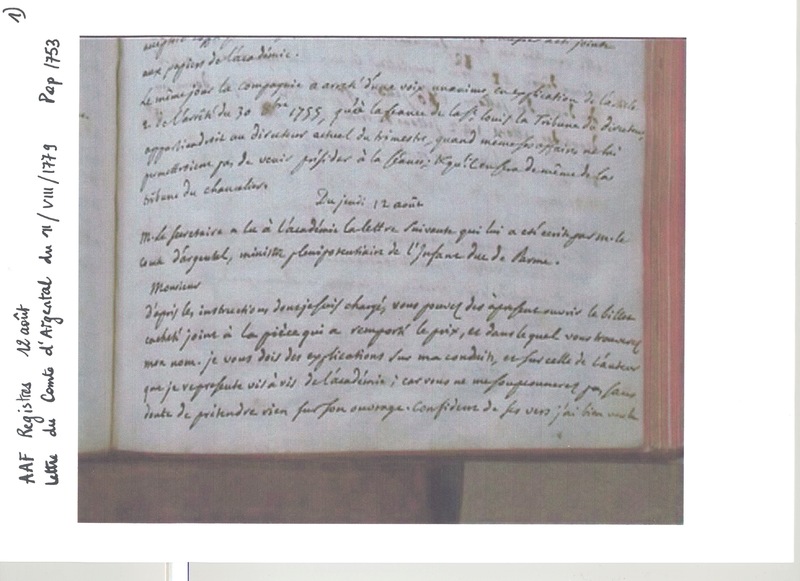 1)
AAF Registres 12 août
Lettre du Comte d'Argental du 11/VIII/1779 Pap 1753
aux papiers de l'académie.
Le même jour la compagnie a arreté d'une voix unanime, en explication de l'article
2 de l'arrêté du 30 1755, qu'à la séance de la St. louis la Tribune du directeur
appartiendroit au directeur actuel du trimestre, quand meme ses affaires ne lui
permettroient pas de venir présider à la séance; & qu'il en sera de même de la
tribune du chancelier.
Du jeudi 12 août
M. le Secretaire a lu à l'académie la lettre suivante qui lui a été ecrite par m. le
comte d'argental, ministre plenipotentiaire de l'Infant duc de Parme.
Monsieur
D'après les instructions dont je suis chargé, vous pouvez dès àprésent ouvrir le billet
cacheté joint à la pièce qui a remporté le prix, et dans lequel vous trouverez
mon nom. je vous dois des explications sur ma conduite, et sur celle de l'auteur
que je represente vis à vis de l'académie; car vous ne me soupçonnerez pas sans
doute de prétendre rien sur son ouvrage. Confident de ses vers j'ai bien